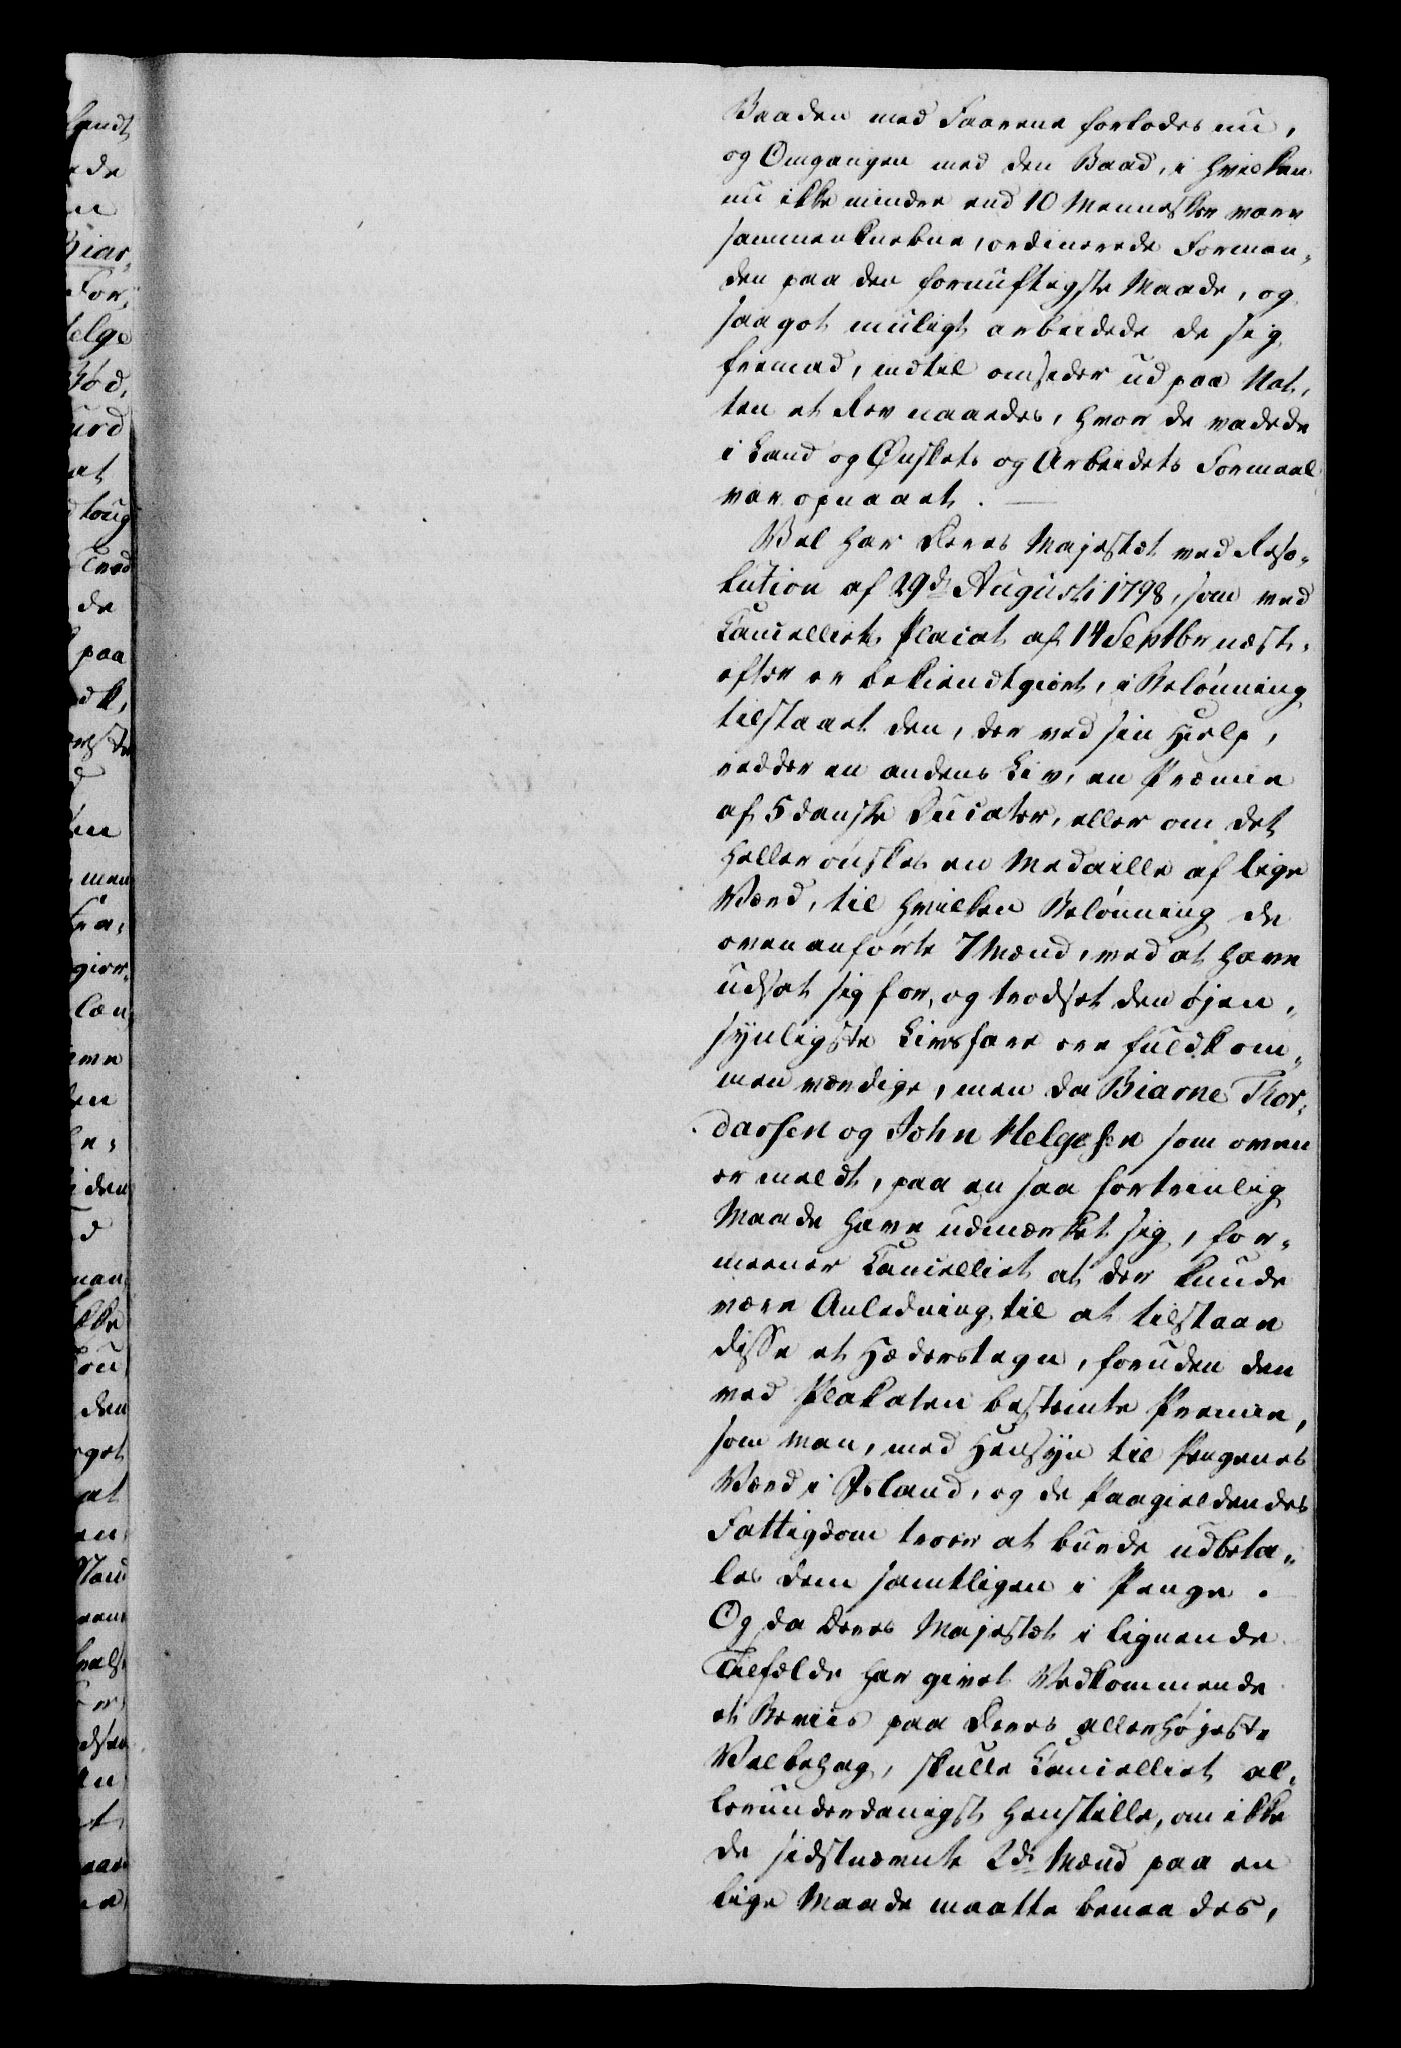 Baaden med Faarene forlodes nu,
og Omgangen med den Baad, i hvilken
nu ikke mindre end 10 Mennesker vare
sammenknebne, ordinerede Forman„
den paa den fornuftigste Maade, og
saa got muligt arbeidede de sig
fremad, indtil omsider ud paa Nat„
ten et Rev naaedes, hvor de vadede
i Land og Ønskets og Arbeidets Formaal
var opnaaet. —
Vel har Deres Majestæt ved Reso„
lution af 29d Augusti 1798, som ved
Cancelliets Placat af 14 Septbr næst„
efter er bekiendtgiort, i Belønning
tilstaaet den, der ved sin Hielp,
redder en andens Liv, en Præmie
af 5 danske Ducater, eller om det
heller ønskes en Medaille af lige
Værd, til hvilken Belønning de
ovenanførte 7 Mænd, ved at have
udsat sig for, og trodset den øjen„
synligste Livsfare ere fuldkom„
men værdige, men da Biarne Thor„
darsen og John Helgesen som oven
er meldt, paa en saa fortrinlig
Maade have udmærket sig, for„
meener Cancelliet at der kunde
være Anledning til at tilstaae
disse et Hæderstegn, foruden den
ved Plakaten bestemte Premie,
som man, med Hensyn til Pengenes
Værd i Island, og de Paagieldendes
Fattigdom troer at burde udbeta„
les dem samtligen i Penge.
Og da Deres Majestæt i lignende
Tilfælde har givet Vedkommende
et Beviis paa Deres allerhøjeste
Velbehag, skulle Cancelliet al„
lerunderdanigst henstille, om ikke
de sidstnævnte 2de Mænd paa en
lige Maade maatte benaades,